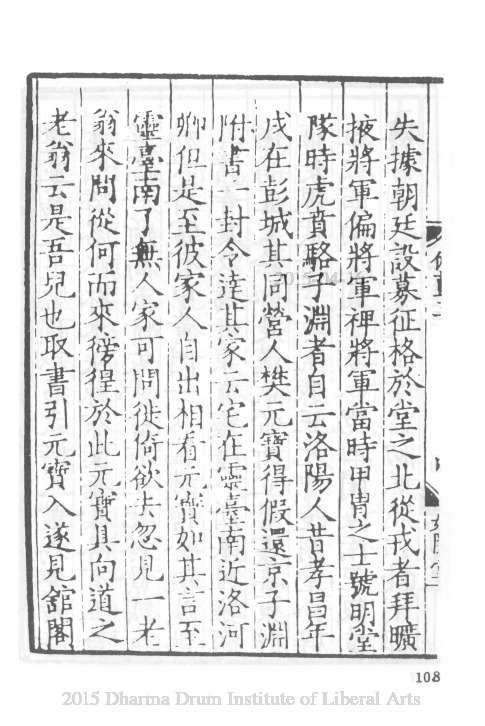 失據朝廷設募征格於堂之北從戎者拜曠
掖將軍偏將軍裨將軍當時甲冑之士號明堂
隊時虎賁駱子淵者自云洛陽人昔孝昌年
戍在彭城其同營人樊元寶得假還京子淵
附書一封令達其家云宅在靈臺南近洛河
卿但是至彼家人自出相看元寶如其言至
靈臺南了無人家可問徙倚欲去忽見一老
翁來問從何而來徬徨於此元寶具向道之
老翁云是吾兒也取書引元寶入遂見舘閣
108
2015 Dharma Drum Institute of Liberal Arts